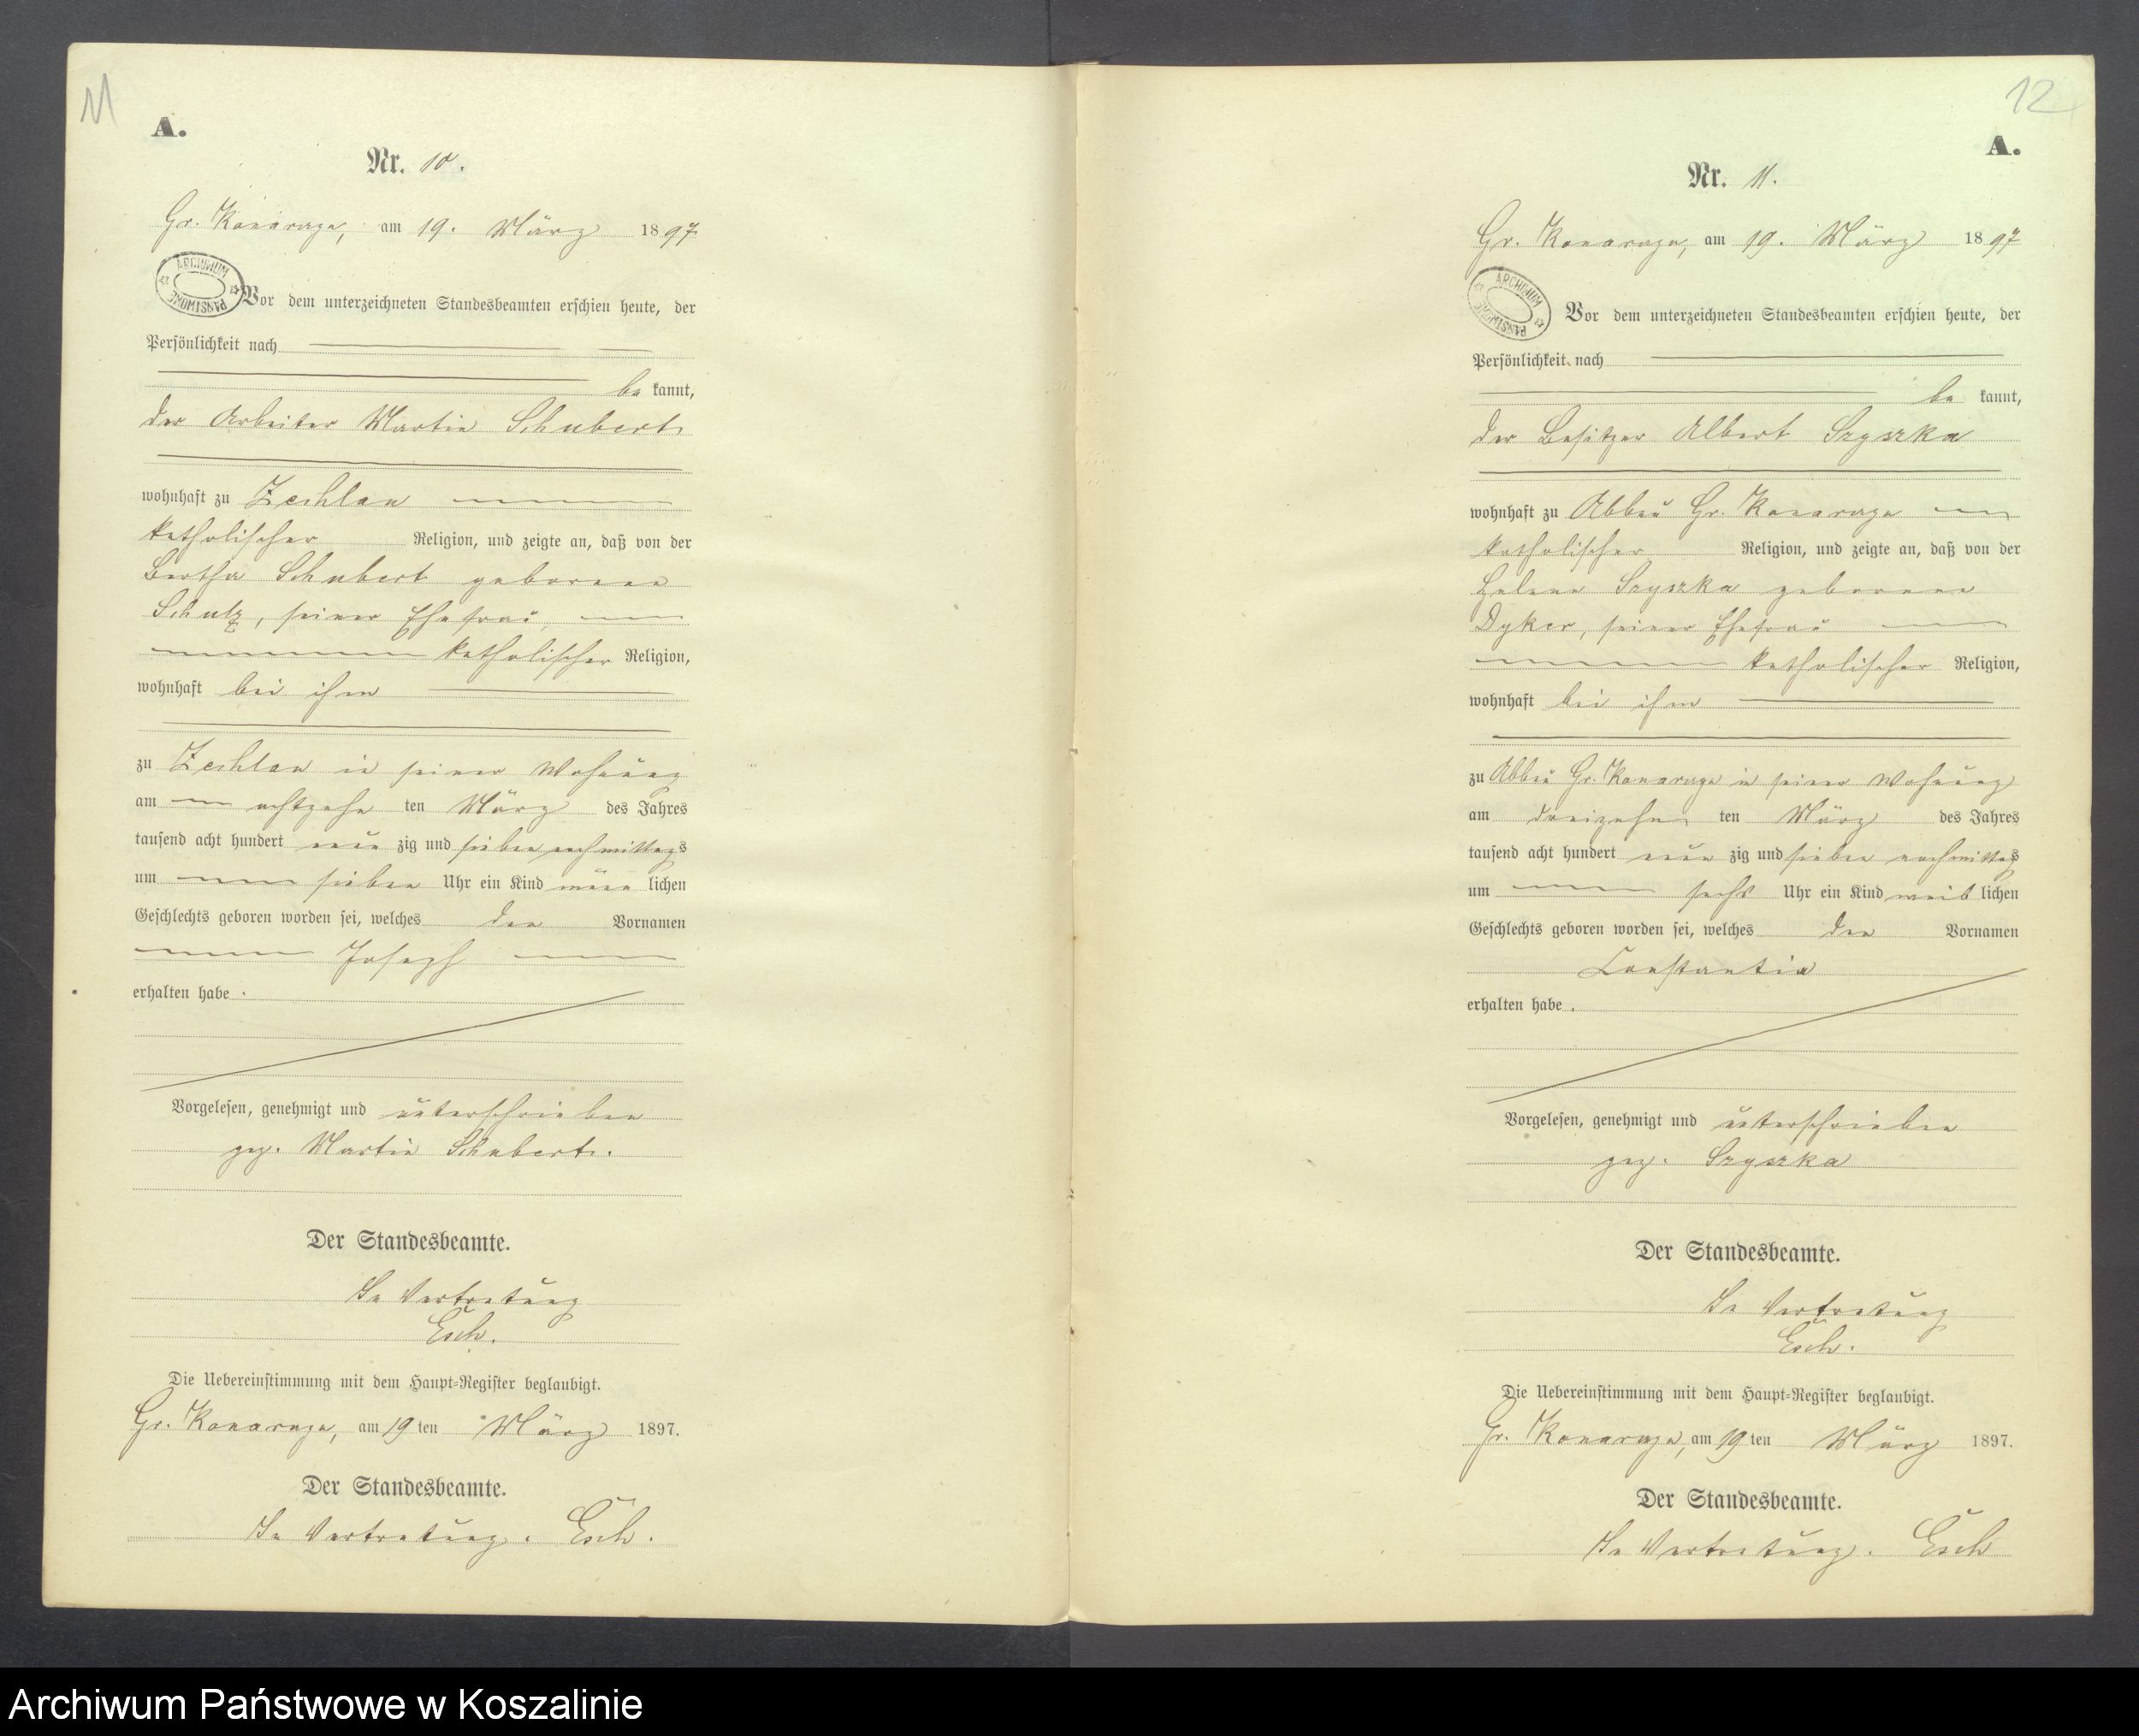 11
A.
Nr. 10.
Gr. Konarzyn, am 19. März 1897
ARCHIWUM PAŃSTWOWE
Vor dem unterzeichneten Standesbeamten erschien heute, der
Persönlichkeit nach
be kannt,
der Arbeiter Martin Schubert
wohnhaft zu Zechlau
katholischer Religion, und zeigte an, daß von der
Bertha Schubert geborene
Schulz, seiner Ehefrau,
katholischer Religion,
wohnhaft bei ihm
zu Zechlau in seiner Wohnung
am achtzehn ten März des Jahres
tausend acht hundert neun zig und sieben nachmittags
um sieben Uhr ein Kind männ lichen
Geschlechts geboren worden sei, welches den Vornamen
Joseph
erhalten habe.
Vorgelesen, genehmigt und unterschrieben
gez. Martin Schubert.
Der Standesbeamte.
In Vertretung
Esch.
Die Uebereinstimmung mit dem Haupt-Register beglaubigt.
Gr. Konarzyn, am 19 ten März 1897.
Der Standesbeamte.
In Vertretung. Esch.
12
A.
Nr. 11.
Gr. Konarzyn, am 19. März 1897
ARCHIWUM PAŃSTWOWE
Vor dem unterzeichneten Standesbeamten erschien heute, der
Persönlichkeit nach
be kannt,
der Besitzer Albert Szyszka
wohnhaft zu Abbau Gr. Konarzyn
katholischer Religion, und zeigte an, daß von der
Helene Szyszka geborene
Dyker, seiner Ehefrau
katholischer Religion,
wohnhaft bei ihm
zu Abbau Gr. Konarzyn in seiner Wohnung
am dreizehn ten März des Jahres
tausend acht hundert neun zig und sieben nachmittags
um sechs Uhr ein Kind weib lichen
Geschlechts geboren worden sei, welches den Vornamen
Constantia
erhalten habe.
Vorgelesen, genehmigt und unterschrieben
gez. Szyszka
Der Standesbeamte.
In Vertretung
Esch.
Die Uebereinstimmung mit dem Haupt-Register beglaubigt.
Gr. Konarzyn, am 19 ten März 1897.
Der Standesbeamte.
In Vertretung. Esch
Archiwum Państwowe w Koszalinie